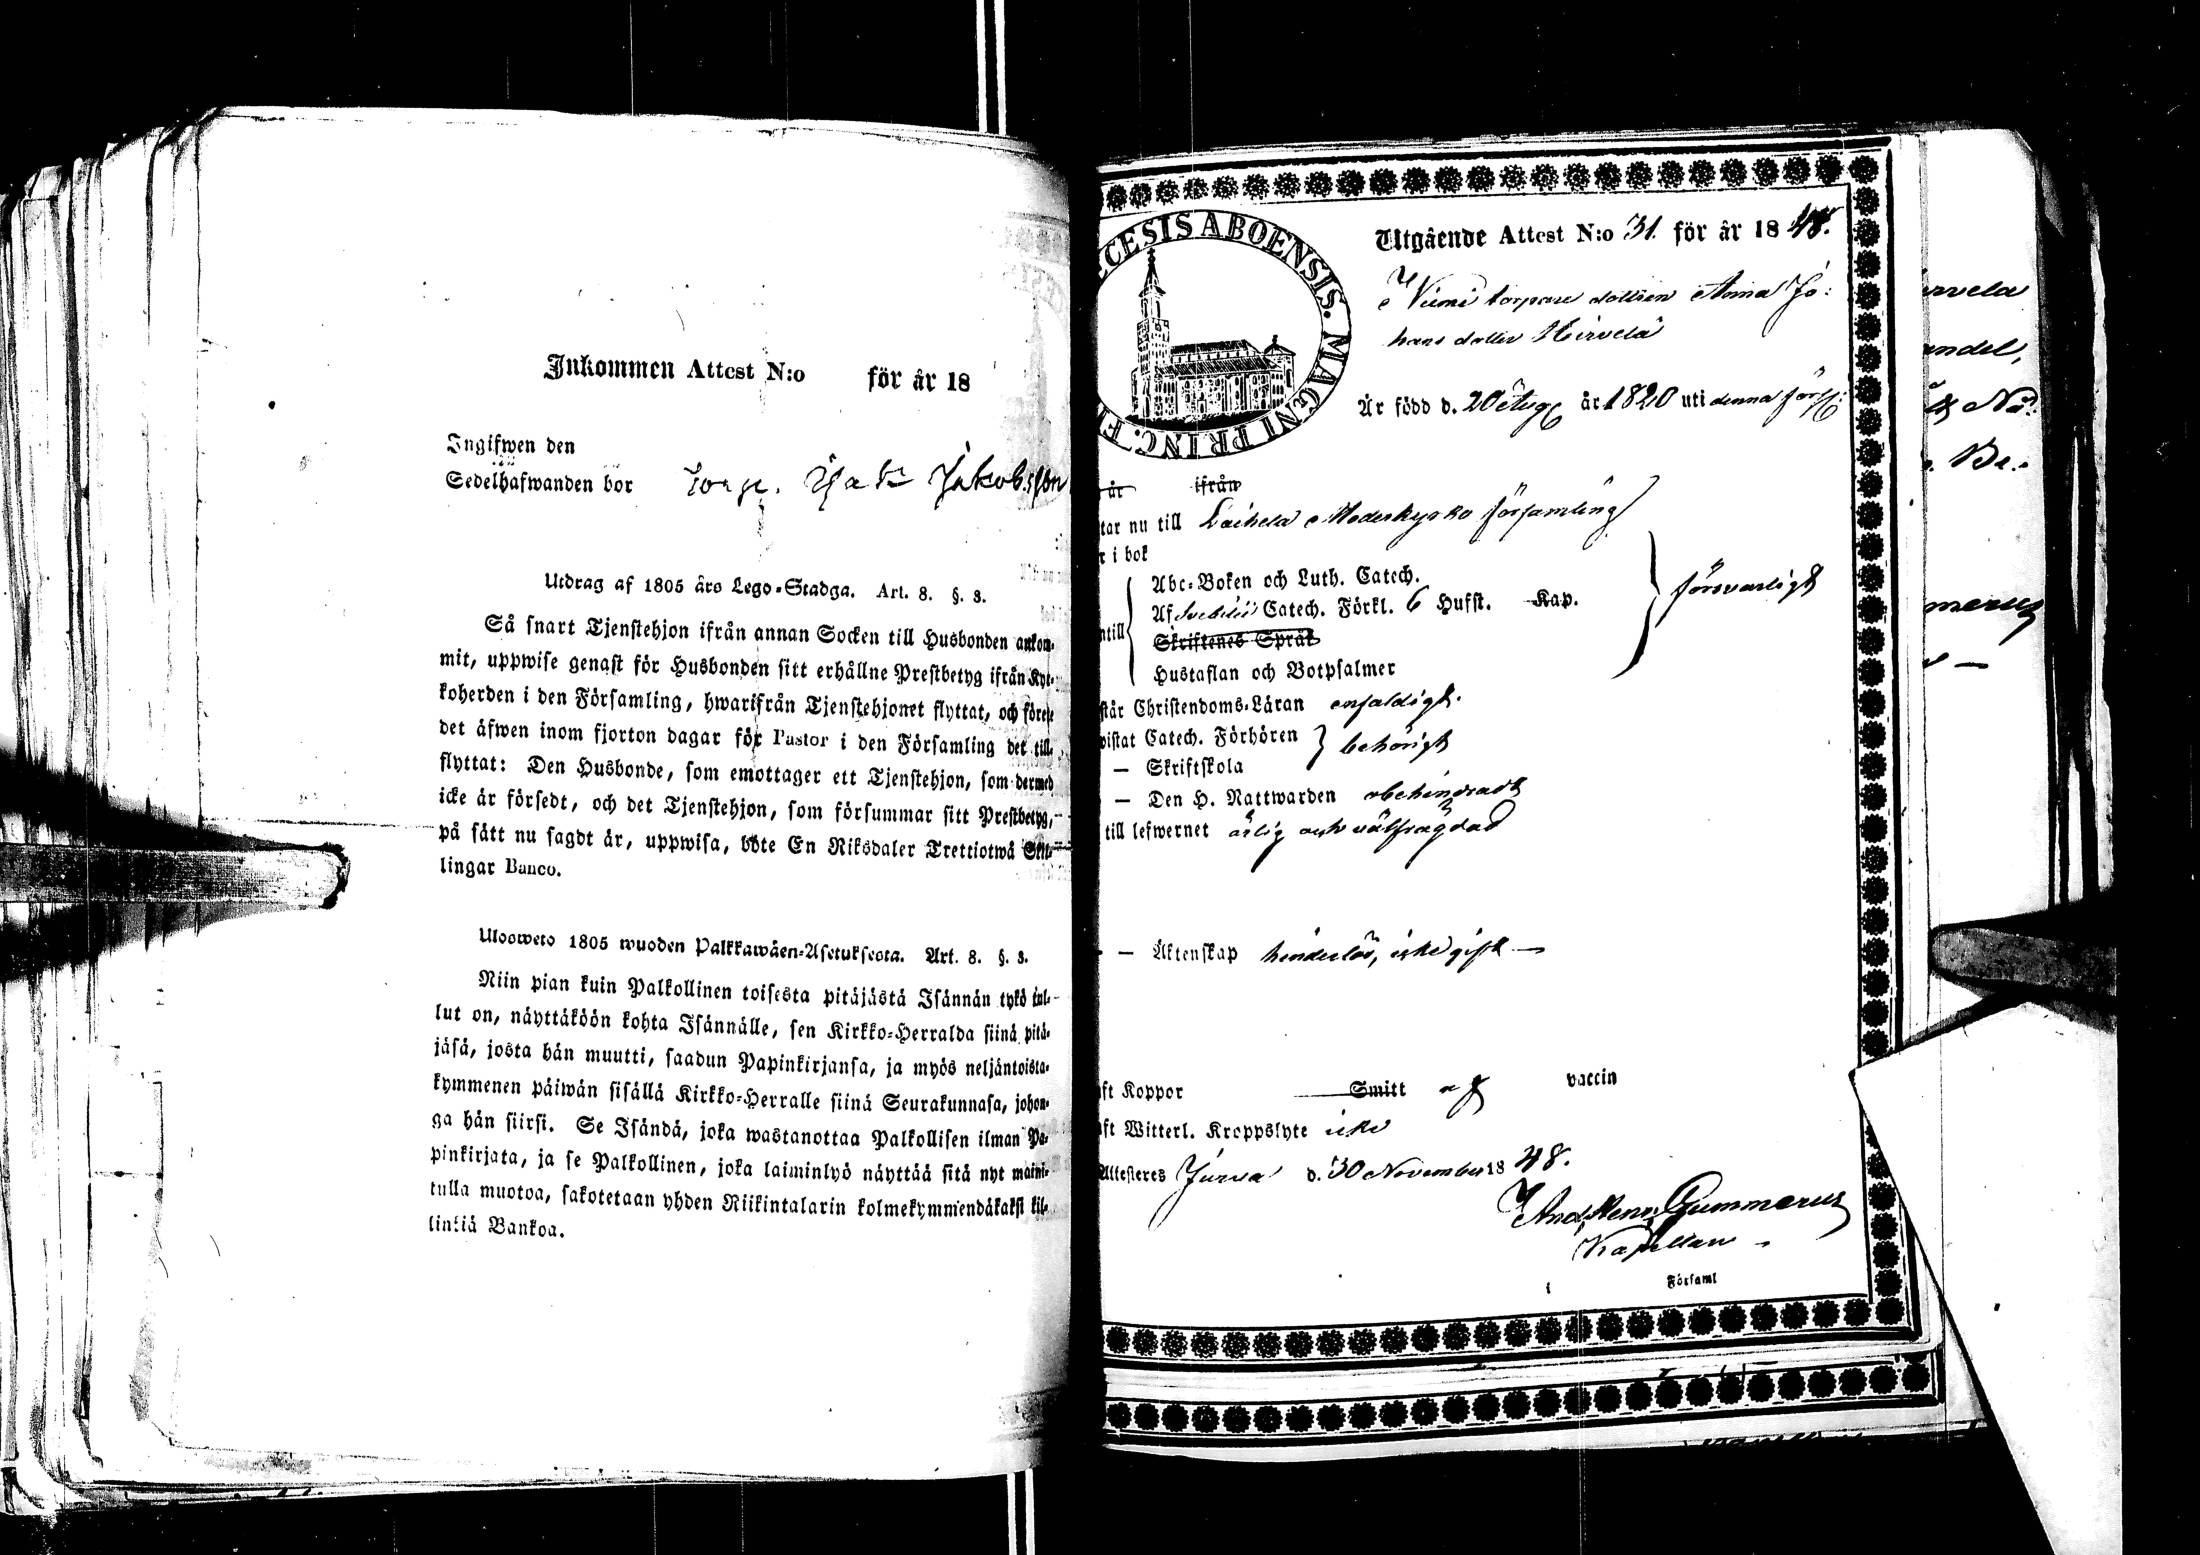 Inkommen Attest N:o för år 18
Ingifwen den
Sedelhafwanden bör Jakobsson
Utdrag af 1805 års Lego-Stadga. Art. 8. §. 3.
Så snart Tjenstehjon ifrån annan Socken till Husbonden ankom-
mit, uppwise genast för Husbonden sitt erhållne Prestbetyg ifrån Kyr-
koherden i den Församling, hwarifrån Tjenstehjonet flyttat, och förete
det äfwen inom fjorton dagar för Pastor i den Församling det till-
flyttat: Den Husbonde, som emottager ett Tjenstehjon, som dermed
icke är försedt, och det Tjenstehjon, som försummar sitt Prestbetyg,
på sätt nu sagdt är, uppwisa, böte En Riksdaler Trettiotwå Skil-
lingar Banco.
Ulosweto 1805 wuoden Palkkawäen-Asetuksesta. Art. 8. §. 3.
Niin pian kuin Palkollinen toisesta pitäjästä Isännän tykö tul-
lut on, näyttäköön kohta Isännälle, sen Kirkko-Herralda siinä pitä-
jäsä, josta hän muutti, saadun Papinkirjansa, ja myös neljäntoista-
kymmenen päiwän sisällä Kirkko-Herralle siinä Seurakunnasa, johon-
ga hän siirsi. Se Isändä, joka wastanottaa Palkollisen ilman Pa-
pinkirjata, ja se Palkollinen, joka laiminlyö näyttää sitä nyt maini-
tulla muotoa, sakotetaan yhden Riikintalarin kolmekymmendäkaksi kil-
linkiä Bankoa.
CESIS ABOENSIS. MAGNI PRINC. F
Utgående Attest N:o 31. för år 1848.
torpare dottren Anna Jo:
hans dotter Hirvelä
Är född d. 20 Aug år 1820 uti denna förs:
är ifrån
tar nu till Laihela Moderkyrko församling
r i bok
Abc-Boken och Luth. Catech.
Af Svebilii Catech. Förkl. 6 Hufst. Kap.
försvarligt
ntill
Skriftenes Språk
Hustaflan och Botpsalmer
står Christendoms-Läran enfaldigt.
wistat Catech. Förhören
behörigt
— Skriftskola
— Den H. Nattwarden obehindradt
till lefwernet ärlig och välfrägdad
— — Äktenskap hinderlös, icke gift —
ft Koppor Smitt af vaccin
ft Witterl. Kroppslyte icke
Attesteres Jurva d. 30 November 1848.
And. Henr. Gummerus
Kapellan
i Församl
rvela
andel,
Be..
merus